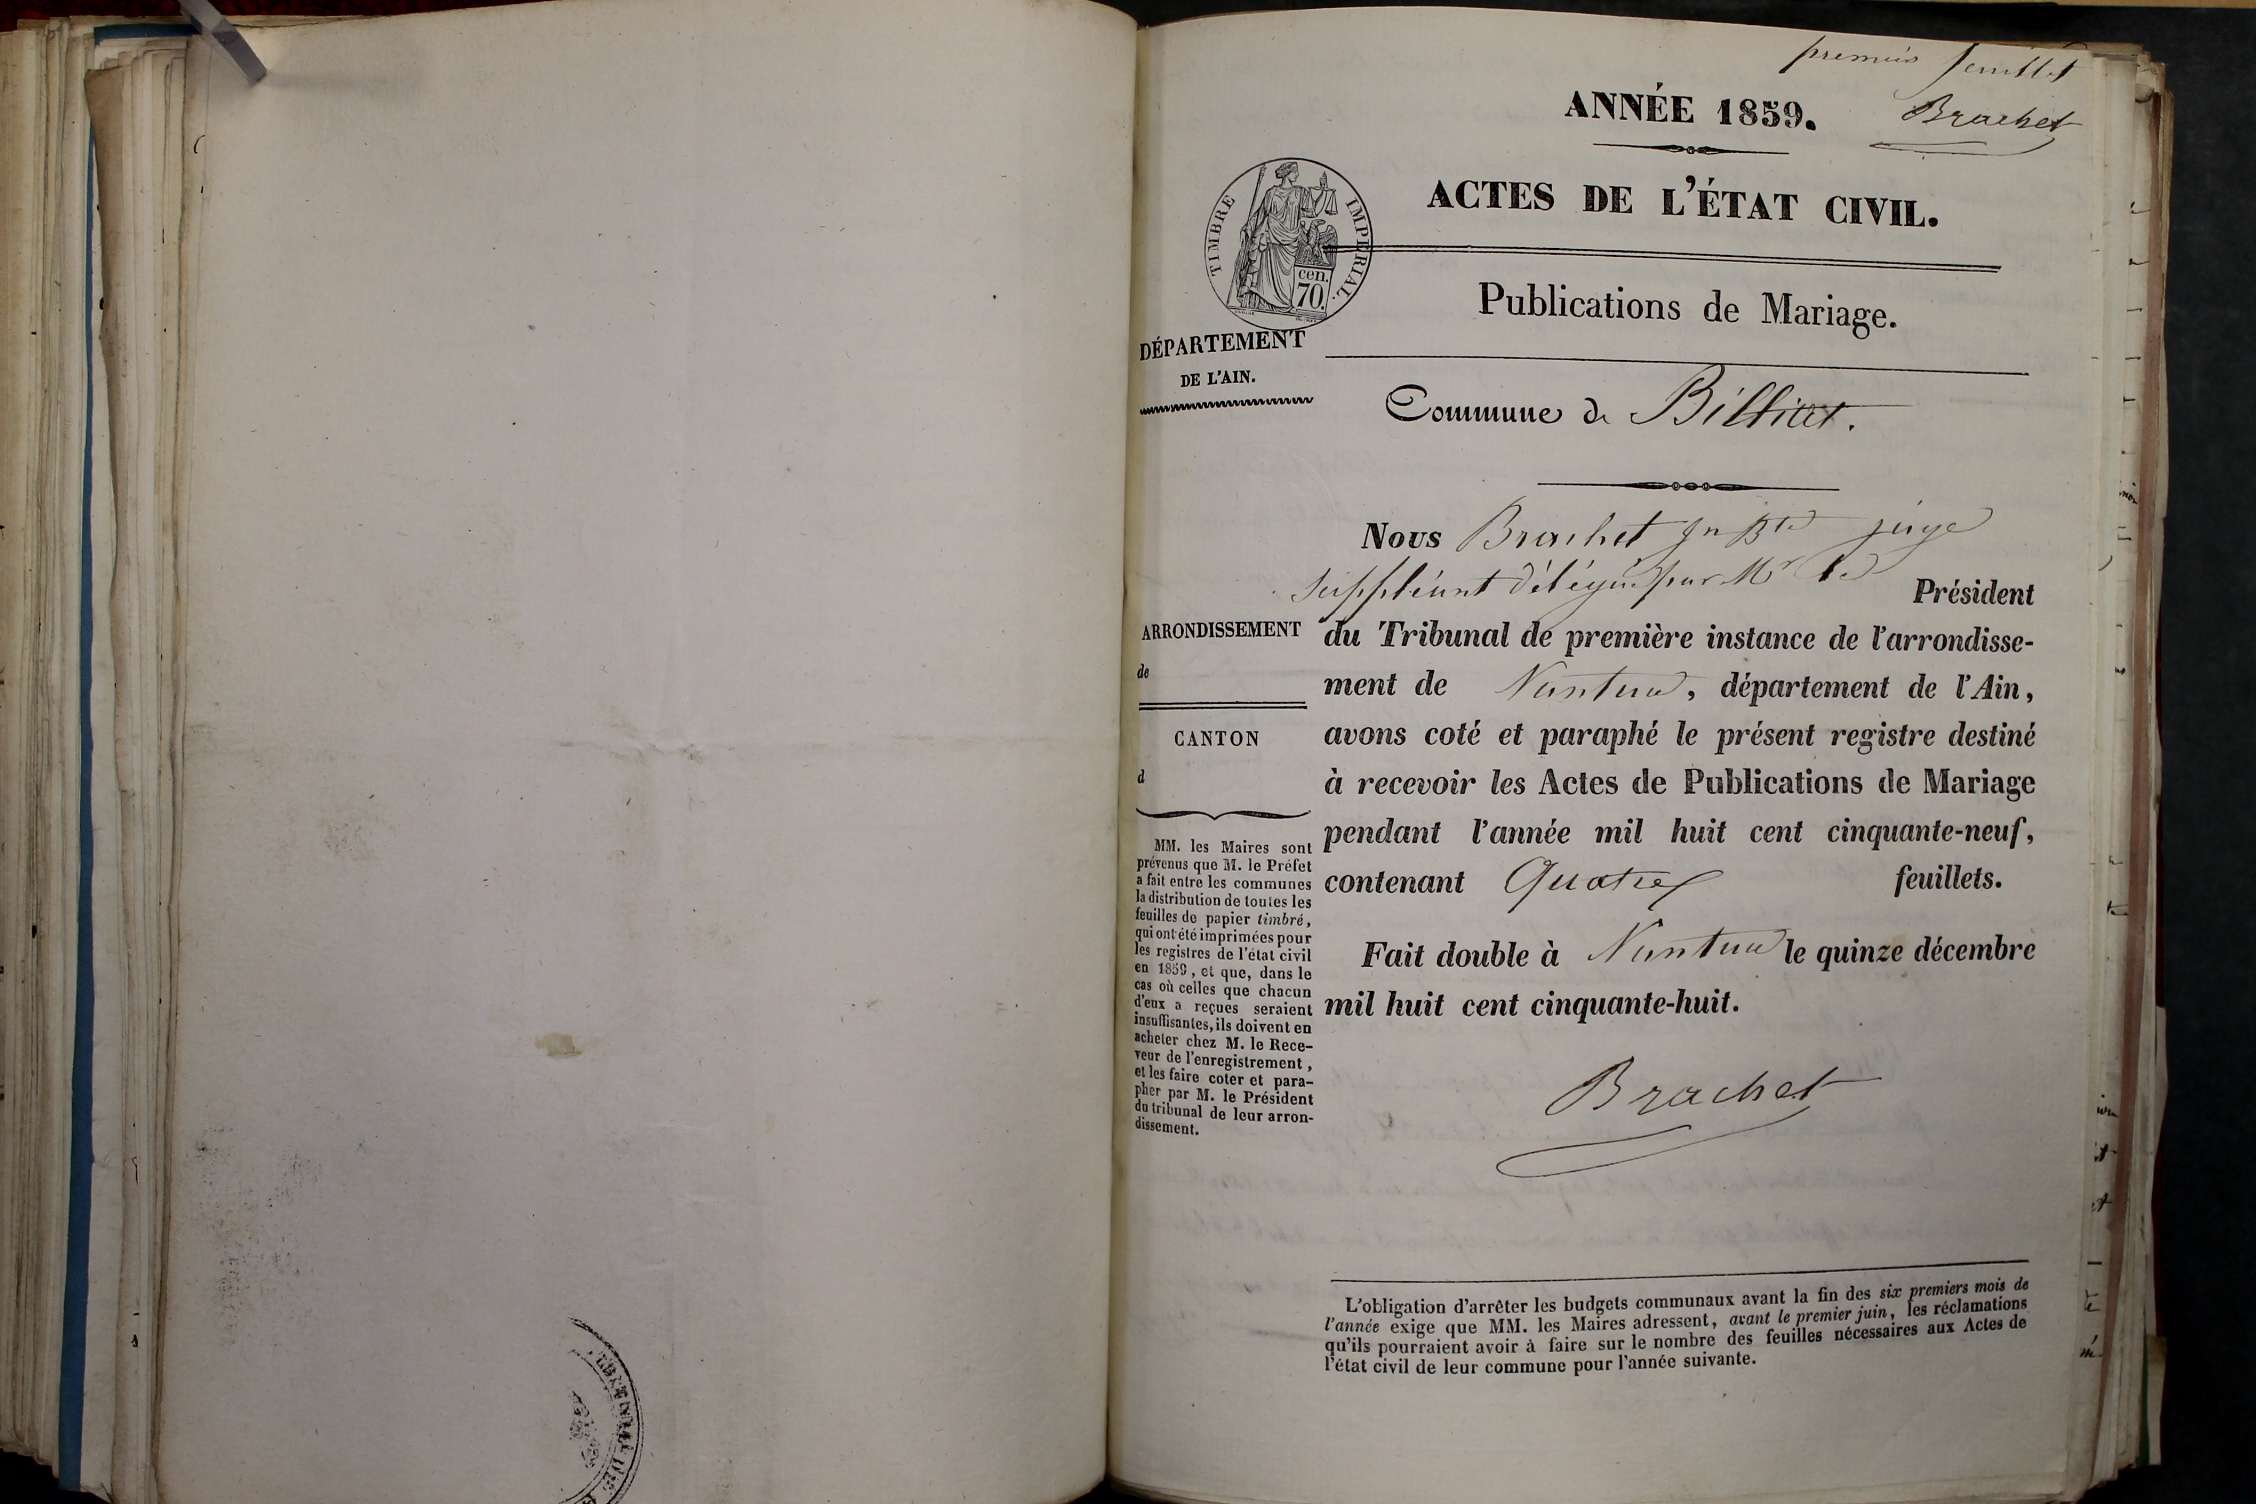 premier feuillet
Brachet
ANNÉE 1859.
ACTES DE L'ÉTAT CIVIL.
TIMBRE IMPÉRIAL.
cen.
70.
Publications de Mariage.
DÉPARTEMENT
DE L'AIN.
Commune de Billiat.
Nous Brachet Jn Bte juge
suppléant délégué par Mr le Président
du Tribunal de première instance de l'arrondisse-
ment de Nantua, département de l'Ain,
avons coté et paraphé le présent registre destiné
à recevoir les Actes de Publications de Mariage
pendant l'année mil huit cent cinquante-neuf,
contenant Quatre feuillets.
Fait double à Nantua le quinze décembre
mil huit cent cinquante-huit.
Brachet
ARRONDISSEMENT
de
CANTON
d
MM. les Maires sont
prévenus que M. le Préfet
a fait entre les communes
la distribution de toutes les
feuilles de papier timbré,
qui ont été imprimées pour
les registres de l'état civil
en 1859, et que, dans le
cas où celles que chacun
d'eux a reçues seraient
insuffisantes, ils doivent en
acheter chez M. le Rece-
veur de l'enregistrement,
et les faire coter et para-
pher par M. le Président
du tribunal de leur arron-
dissement.
L'obligation d'arrêter les budgets communaux avant la fin des six premiers mois de
l'année exige que MM. les Maires adressent, avant le premier juin, les réclamations
qu'ils pourraient avoir à faire sur le nombre des feuilles nécessaires aux Actes de
l'état civil de leur commune pour l'année suivante.